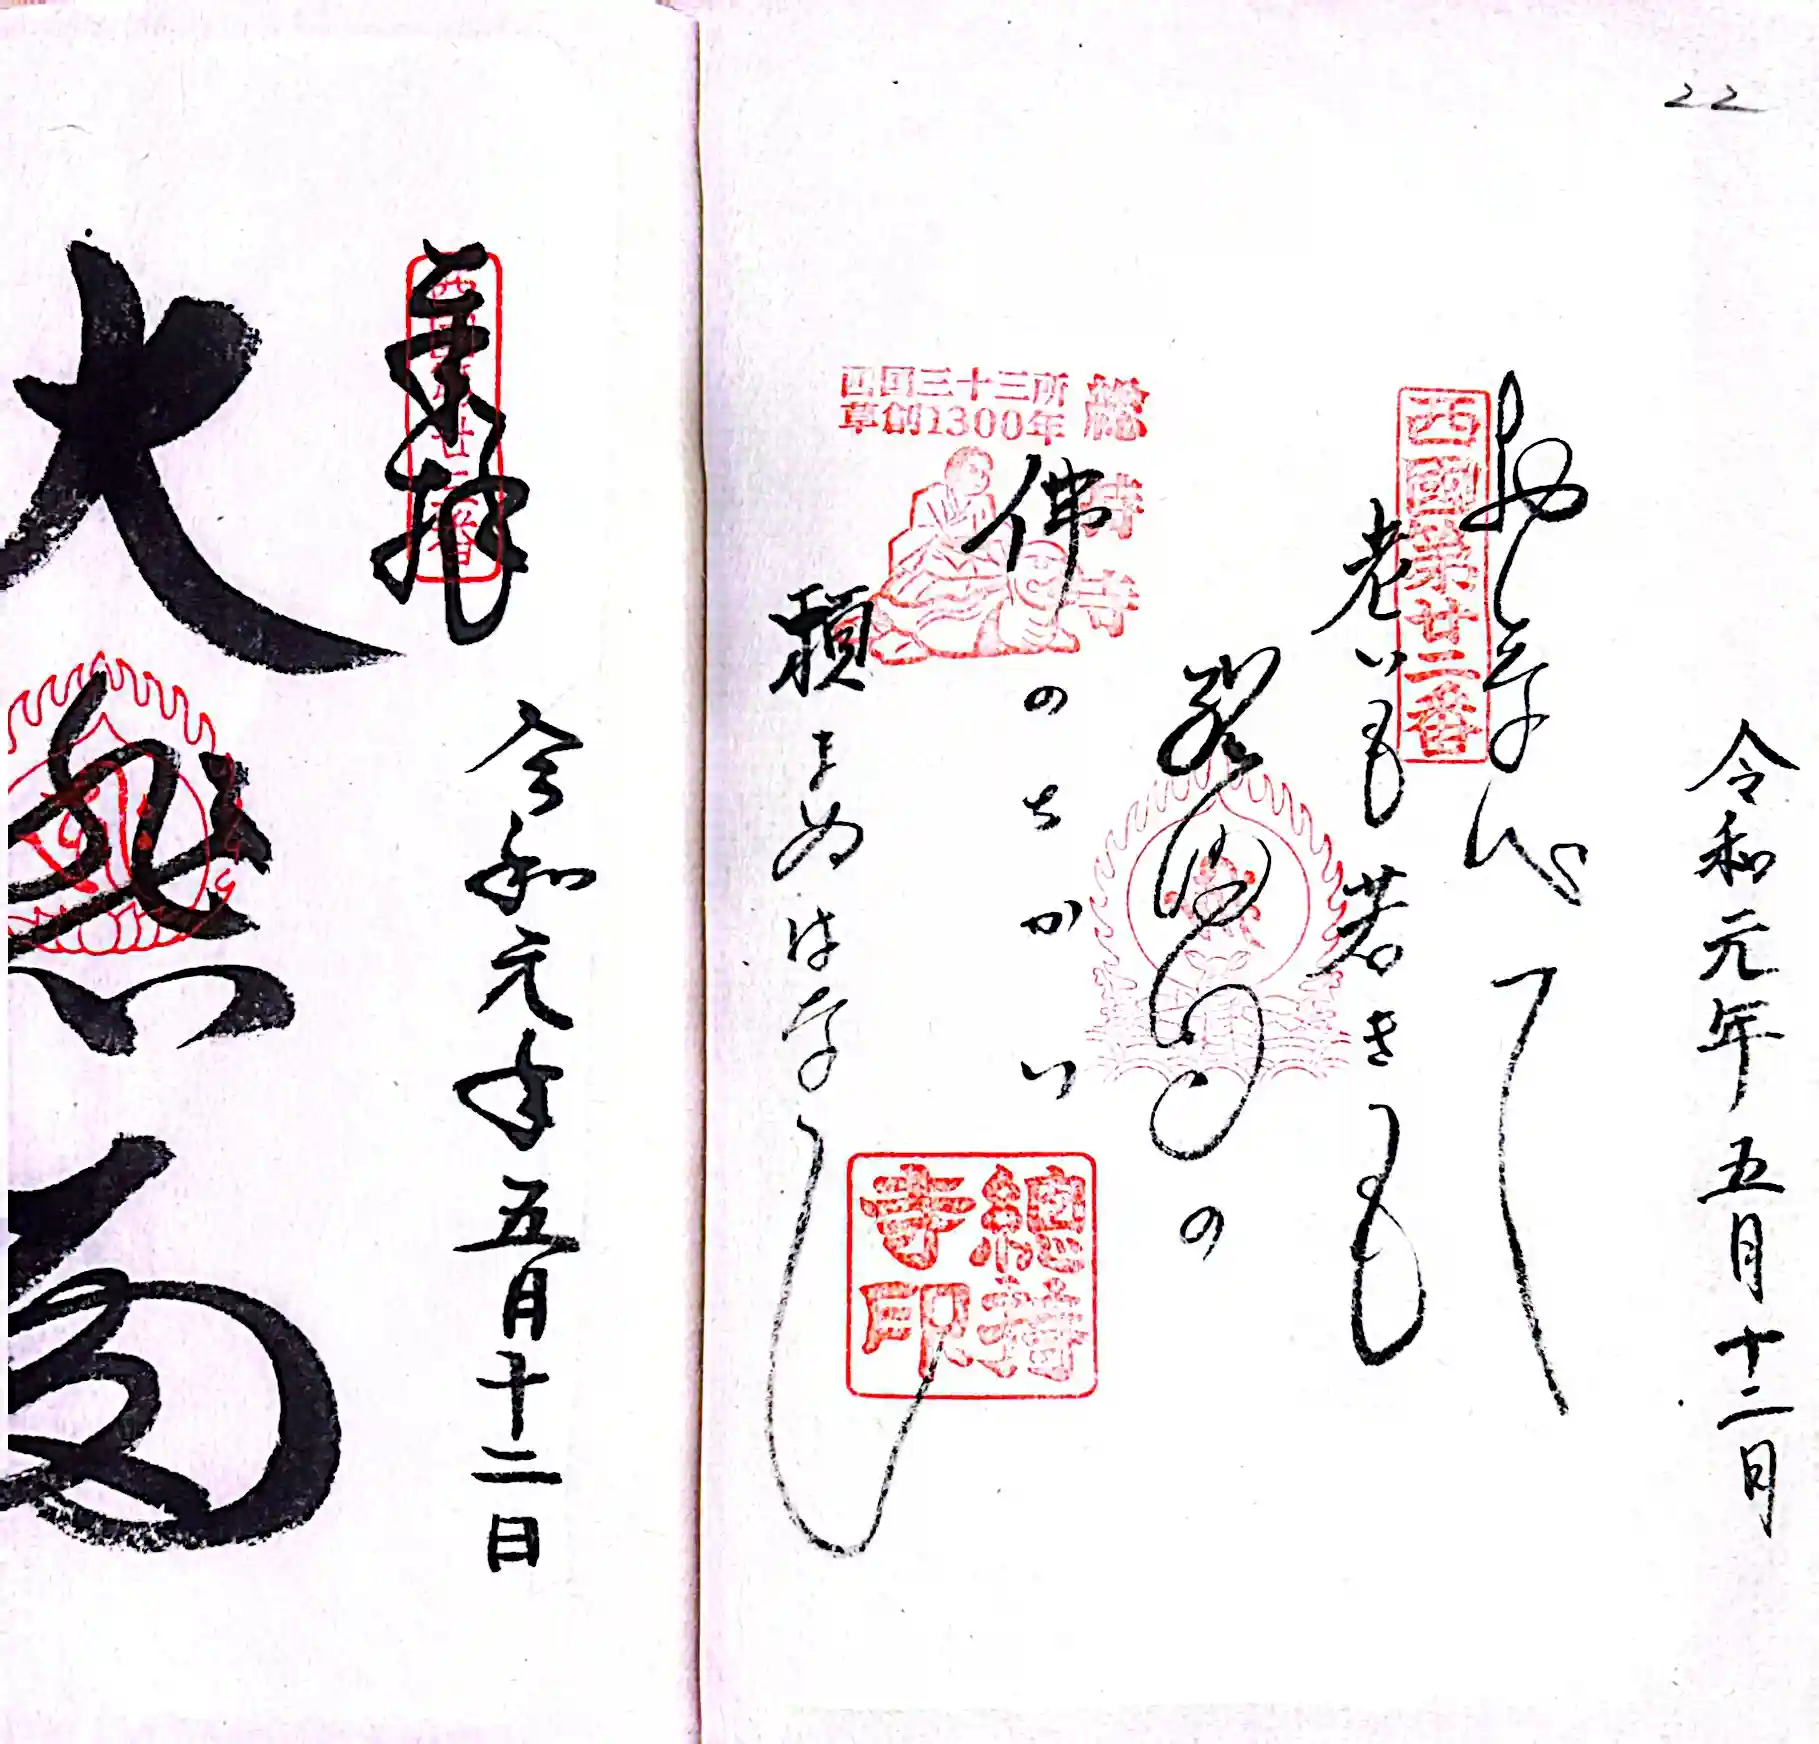 22
令和元年五月十二日
西國第廿二番
おしなべて
老いも若きも
の
佛のちかい
頼まぬはなし
西国三十三所
草創1300年
總持寺
總持寺印
奉拝
西國第廿二番
令和元年五月十二日
大悲